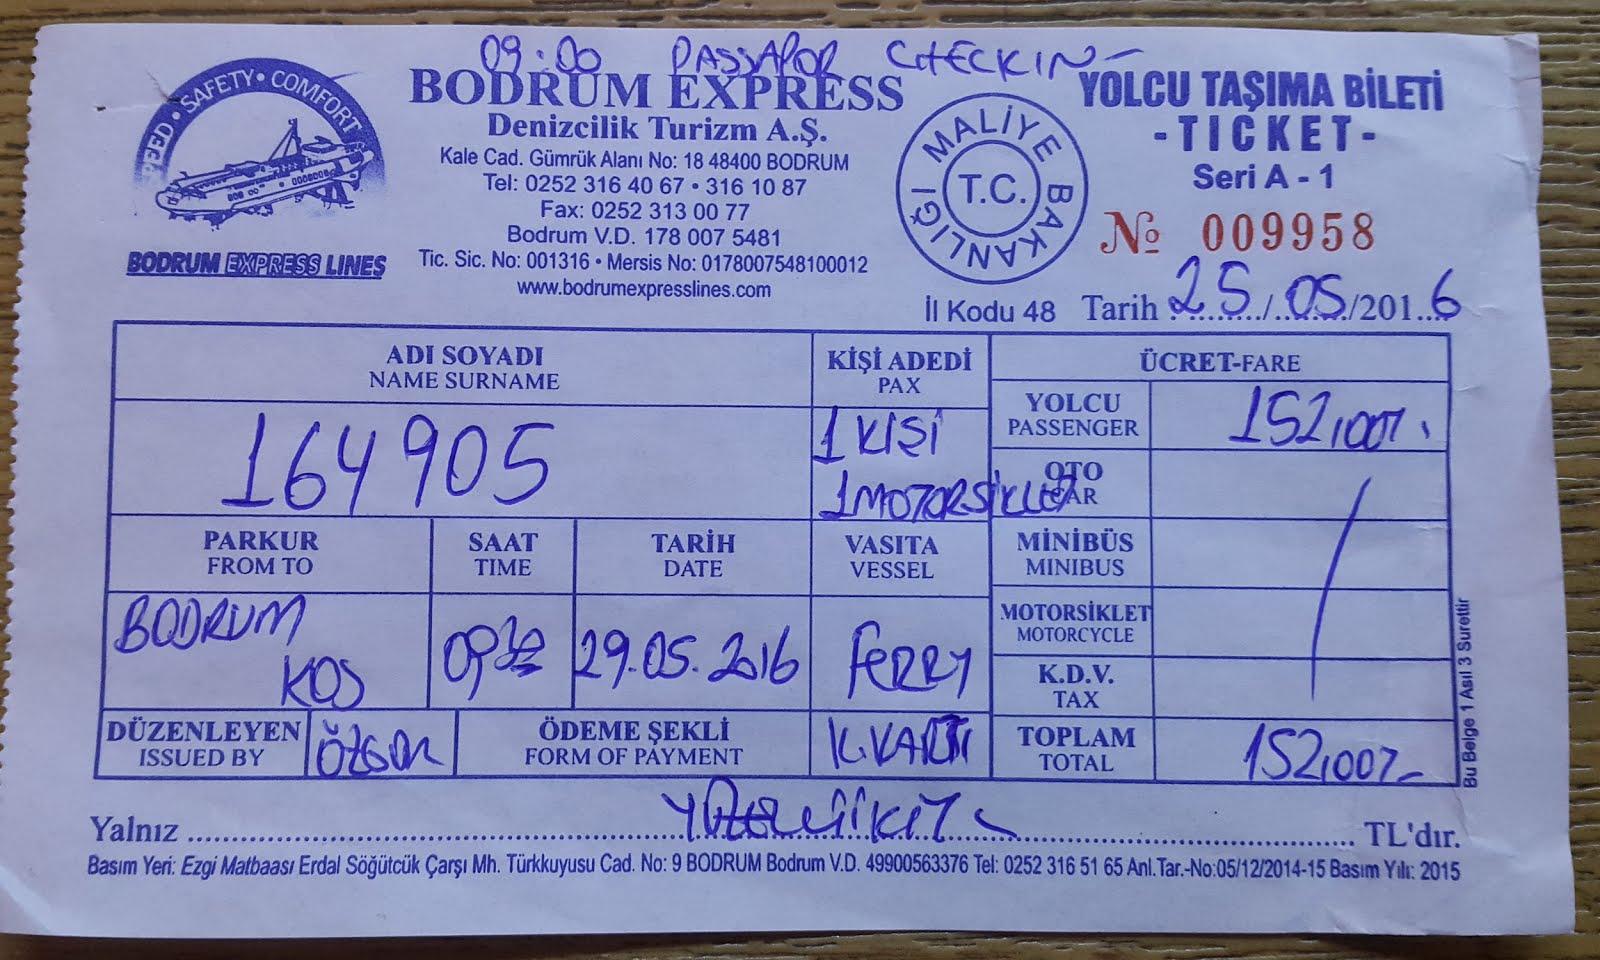 09:00 PASSAPOR CHECKIN
SPEED • SAFETY • COMFORT
BODRUM EXPRESS LINES
BODRUM EXPRESS
Denizcilik Turizm A.Ş.
Kale Cad. Gümrük Alanı No: 18 48400 BODRUM
Tel: 0252 316 40 67 • 316 10 87
Fax: 0252 313 00 77
Bodrum V.D. 178 007 5481
Tic. Sic. No: 001316 • Mersis No: 0178007548100012
www.bodrumexpresslines.com
MALİYE BAKANLIĞI
T.C.
YOLCU TAŞIMA BİLETİ
- TICKET -
Seri A - 1
№ 009958
İl Kodu 48 Tarih 25/05/2016
ADI SOYADI
NAME SURNAME
164905
KİŞİ ADEDİ
PAX
1 KİŞİ
1 MOTORSİKLET
ÜCRET-FARE
YOLCU
PASSENGER
152,00
OTO
CAR
MİNİBÜS
MINIBUS
MOTORSİKLET
MOTORCYCLE
K.D.V.
TAX
TOPLAM
TOTAL
152,00
PARKUR
FROM TO
BODRUM
KOS
SAAT
TIME
TARİH
DATE
29.05.2016
VASITA
VESSEL
FERRY
DÜZENLEYEN
ISSUED BY
ÖZGÜR
ÖDEME ŞEKLİ
FORM OF PAYMENT
K.KARTI
Yalnız YÜZELLİİKİ TL'dır.
Basım Yeri: Ezgi Matbaası Erdal Söğütcük Çarşı Mh. Türkkuyusu Cad. No: 9 BODRUM Bodrum V.D. 49900563376 Tel: 0252 316 51 65 Anl.Tar.-No:05/12/2014-15 Basım Yılı: 2015
Bu Belge 1 Asıl 3 Surettir